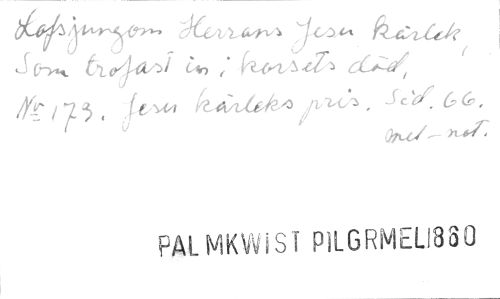 Lofsjungom Herrans Jesu kärlek,
Som trofast in i korsets död,
No 173. Jesu kärleks pris. Sid. 66.
mel-not.
PALMKWIST PILGRMEL1860